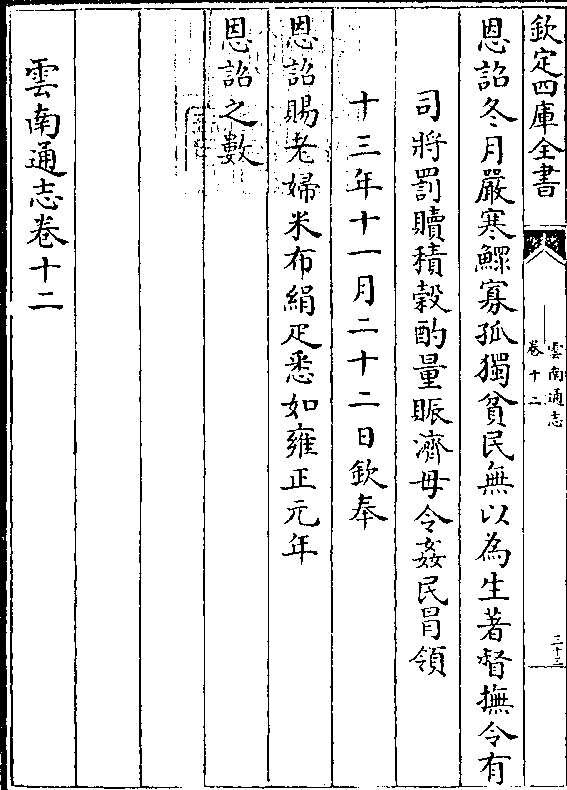 欽定四庫全書
雲南通志
卷十二
三十三
恩詔冬月嚴寒鰥寡孤獨貧民無以為生著督撫令有
司將罰贖積穀酌量賑濟毋令姦民冐領
十三年十一月二十二日欽奉
恩詔賜老婦米布絹疋悉如雍正元年
恩詔之數
雲南通志卷十二